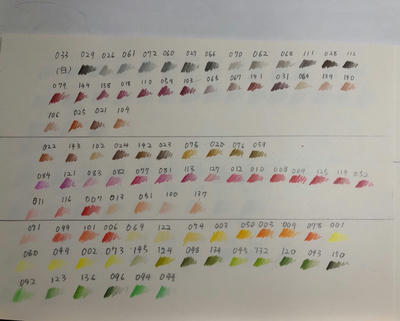 033 029 026 061 072 060 027 066 070 062 068 111 028 112
(白)
079 149 138 018 110 054 103 065 067 141 031 064 139 140
106 025 021 109
022 143 102 024 142 023 075 020 076 059
084 121 083 082 077 081 113 127 012 010 008 009 125 119 052
011 116 007 013 051 100 137
071 099 101 006 069 122 074 003 050 005 004 078 001
080 049 002 073 145 124 048 134 045 132 120 043 130
042 123 136 046 044 098